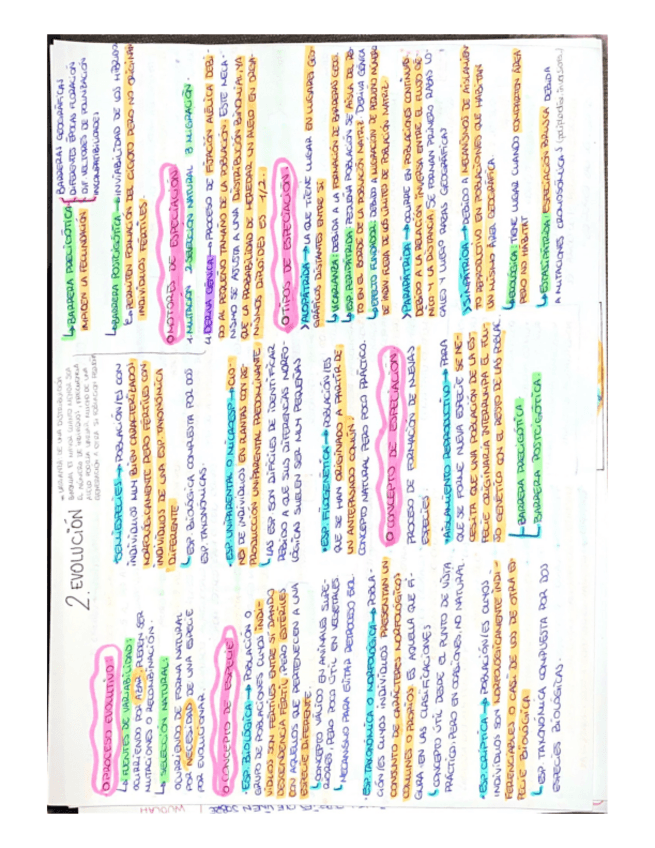 2. EVOLUCIÓN
O PROCESO EVOLUTIVO:
↳ FUENTES DE VARIABILIDAD:
OCURRIENDO POR AZAR, PUEDEN SER
MUTACIONES O RECOMBINACIÓN.
↳ SELECCIÓN NATURAL:
OCURRIENDO DE FORMA NATURAL
POR NECESIDAD DE UNA ESPECIE
POR EVOLUCIONAR.
O CONCEPTO DE ESPECIE
· ESP. BIOLÓGICA → POBLACIÓN O
GRUPO DE POBLACIONES CUYOS INDI-
VIDUOS SON FÉRTILES ENTRE SÍ DANDO
DESCENDENCIA FÉRTIL, PERO ESTÉRILES
CON AQUELLOS QUE PERTENECEN A UNA
ESPECIE DIFERENTE
↳ CONCEPTO VÁLIDO EN ANIMALES SUPE-
RIORES, PERO POCO ÚTIL EN VEGETALES
↳ MECANISMO PARA EVITAR RETROCESO EVOL.
· ESP. TAXONÓMICA O MORFOLÓGICA → POBLA-
CIÓN/ES CUYOS INDIVIDUOS PRESENTAN UN
CONJUNTO DE CARACTERES MORFOLÓGICOS
COMUNES O PROPIOS. ES AQUELLA QUE FI-
GURA EN LAS CLASIFICACIONES
↳ CONCEPTO ÚTIL DESDE EL PUNTO DE VISTA
PRÁCTICO, PERO EN OCASIONES, NO NATURAL
· ESP. CRÍPTICA → POBLACIÓN/ES CUYOS
INDIVIDUOS SON MORFOLÓGICAMENTE INDI-
FERENCIABLES O CASI DE LOS DE OTRA ES-
PECIE BIOLÓGICA.
↳ ESP. TAXONÓMICA COMPUESTA POR DOS
ESPECIES BIOLÓGICAS.
· SEMIESPECIES → POBLACIÓN/ES CON
INDIVIDUOS MUY BIEN CARACTERIZADOS
MORFOLÓGICAMENTE PERO FÉRTILES CON
INDIVIDUOS DE UNA ESP. TAXONÓMICA
DIFERENTE
↳ ESP. BIOLÓGICA COMPUESTA POR DOS
ESP. TAXONÓMICAS.
· ESP. UNIPARENTAL O MICROESP →
DE INDIVIDUOS EN PLANTAS CON RE-
PRODUCCIÓN UNIPARENTAL PREDOMINANTE
↳ LAS ESP SON DIFÍCILES DE IDENTIFICAR
DEBIDO A QUE SUS DIFERENCIAS MORFO-
LÓGICAS SUELEN SER MUY PEQUEÑAS
· ESP. FILOGENÉTICA → POBLACIÓN/ES
QUE SE HAN ORIGINADO A PARTIR DE
UN ANTEPASADO COMÚN.
CONCEPTO NATURAL PERO POCO PRÁCTICO.
O CONCEPTO DE ESPECIACIÓN
PROCESO DE FORMACIÓN DE NUEVAS
ESPECIES
· AISLAMIENTO REPRODUCTIVO → PARA
QUE SE FORME NUEVA ESPECIE SE NE-
CESITA QUE UNA POBLACIÓN DE LA ES-
PECIE ORIGINARIA INTERRUMPA EL FLUJO
GENÉTICO CON EL RESTO DE LAS POBLAC.
↳ BARRERA PRECIGÓTICA
↳ BARRERA POSTCIGÓTICA.
↳ BARRERA PRECIGÓTICA
IMPIDEN LA FECUNDACIÓN
BARRERAS GEOGRÁFICAS
DIFERENTES ÉPOCAS FLORACIÓN
VECTORES DE POLINIZACIÓN
INCOMPATIBILIDADES
↳ BARRERA POSTCIGÓTICA → INVIABILIDAD DE LOS HÍBRIDOS
PERMITEN FORMACIÓN DEL CIGOTO PERO NO ORIGINAN
INDIVIDUOS FÉRTILES.
O MOTORES DE ESPECIACIÓN
1. MUTACIÓN 2. SELECCIÓN NATURAL 3. MIGRACIÓN
4. DERIVA GÉNICA → PROCESO DE FIJACIÓN ALÉLICA DEBI-
DO AL PEQUEÑO TAMAÑO DE LA POBLACIÓN. ESTE MECA-
NISMO SE AJUSTA A UNA DISTRIBUCIÓN BINOMIAL, YA
QUE LA PROBABILIDAD DE HEREDAR UN ALELO EN ORGA-
NISMOS DIPLOIDES ES 1/2.
O TIPOS DE ESPECIACIÓN
> ALOPÁTRIDA → LA QUE TIENE LUGAR EN LUGARES GEO-
GRÁFICOS DISTANTES ENTRE SÍ
↳ VICARIANZA: DEBIDA A LA FORMACIÓN DE BARRERAS GEOG.
↳ ESP. PERIPÁTRIDA: PEQUEÑA POBLACIÓN SE AÍSLA DEL RE-
TO EN EL BORDE DE LA POBLACIÓN MATRIZ. DERIVA GÉNICA
↳ EFECTO FUNDADOR: DEBIDO A MIGRACIÓN DE PEQUEÑO NÚMERO
DE INDIV FUERA DE LOS LÍMITES DE POBLACIÓN MATRIZ
> PARAPÁTRIDA → OCURRE EN POBLACIONES CONTINUAS
DEBIDO A RELACIÓN INVERSA ENTRE EL FLUJO GÉ-
NICO Y LA DISTANCIA. SE FORMAN PRIMERO RAZAS LO-
CALES Y LUEGO RAZAS GEOGRÁFICAS
> SIMPÁTRIDA → DEBIDO A MECANISMOS DE AISLAMIEN-
TO REPRODUCTIVO EN POBLACIONES QUE HABITAN
UN MISMO ÁREA GEOGRÁFICA
↳ ECOLÓGICA: TIENE LUGAR CUANDO COMPARTEN ÁREA
PERO NO HÁBITAT
↳ ESTASIPÁTRIDA: ESPECIACIÓN BRUSCA DEBIDA
A MUTACIONES CROMOSÓMICAS